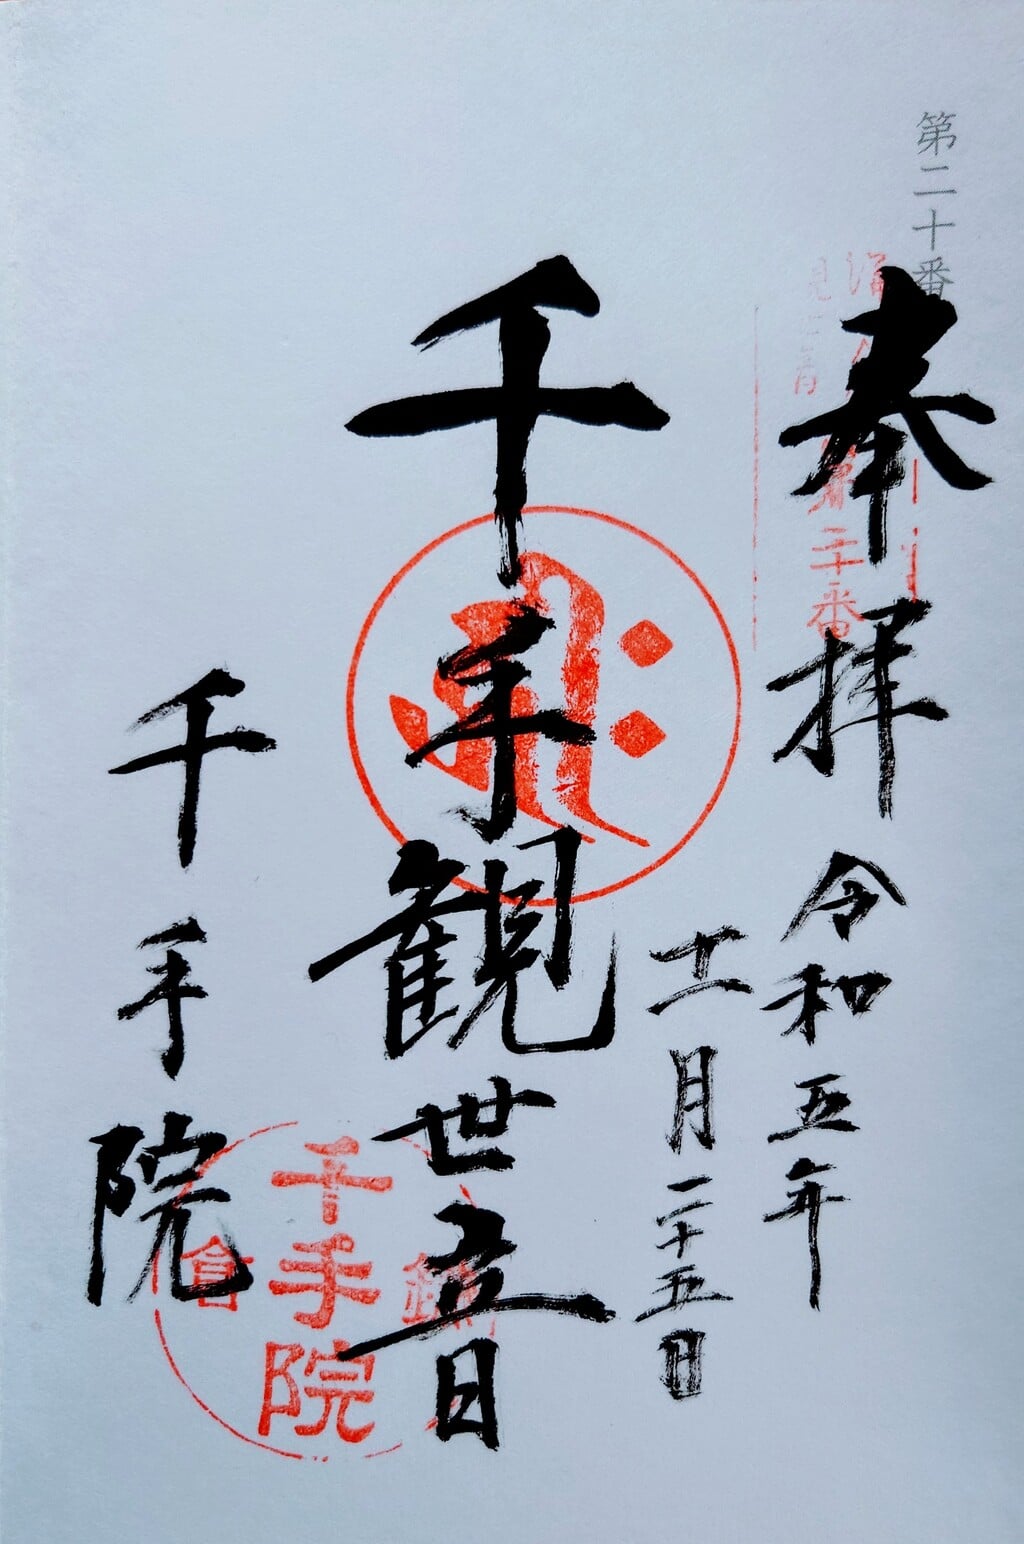 第二十番
奉拝
第二十番
令和五年
十一月二十五日
千手観世音
千手院
鎌倉
千手院